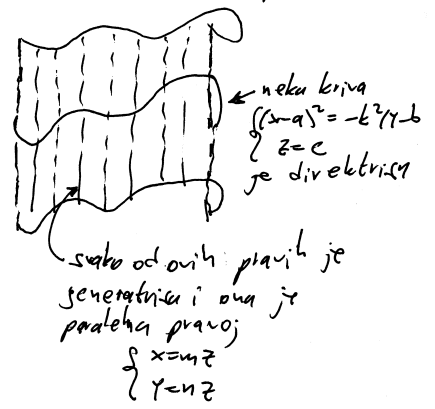 neka kriva
{(x-a)² = -k²(y-b
{ z=c
je direktrisa
svako od ovih pravih je
generatrisa i ona je
paralelna pravoj
{ x=mz
{ y=nz